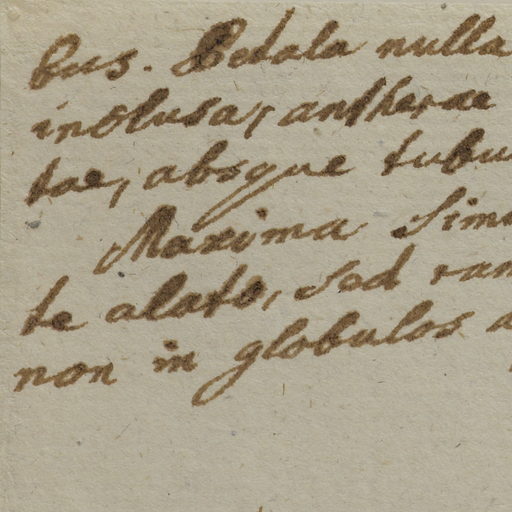 bus. Petala nulla
inclusa, antherae
tae, absque tubu
Maxima Sim
te alato, sed ram
non in globulos a